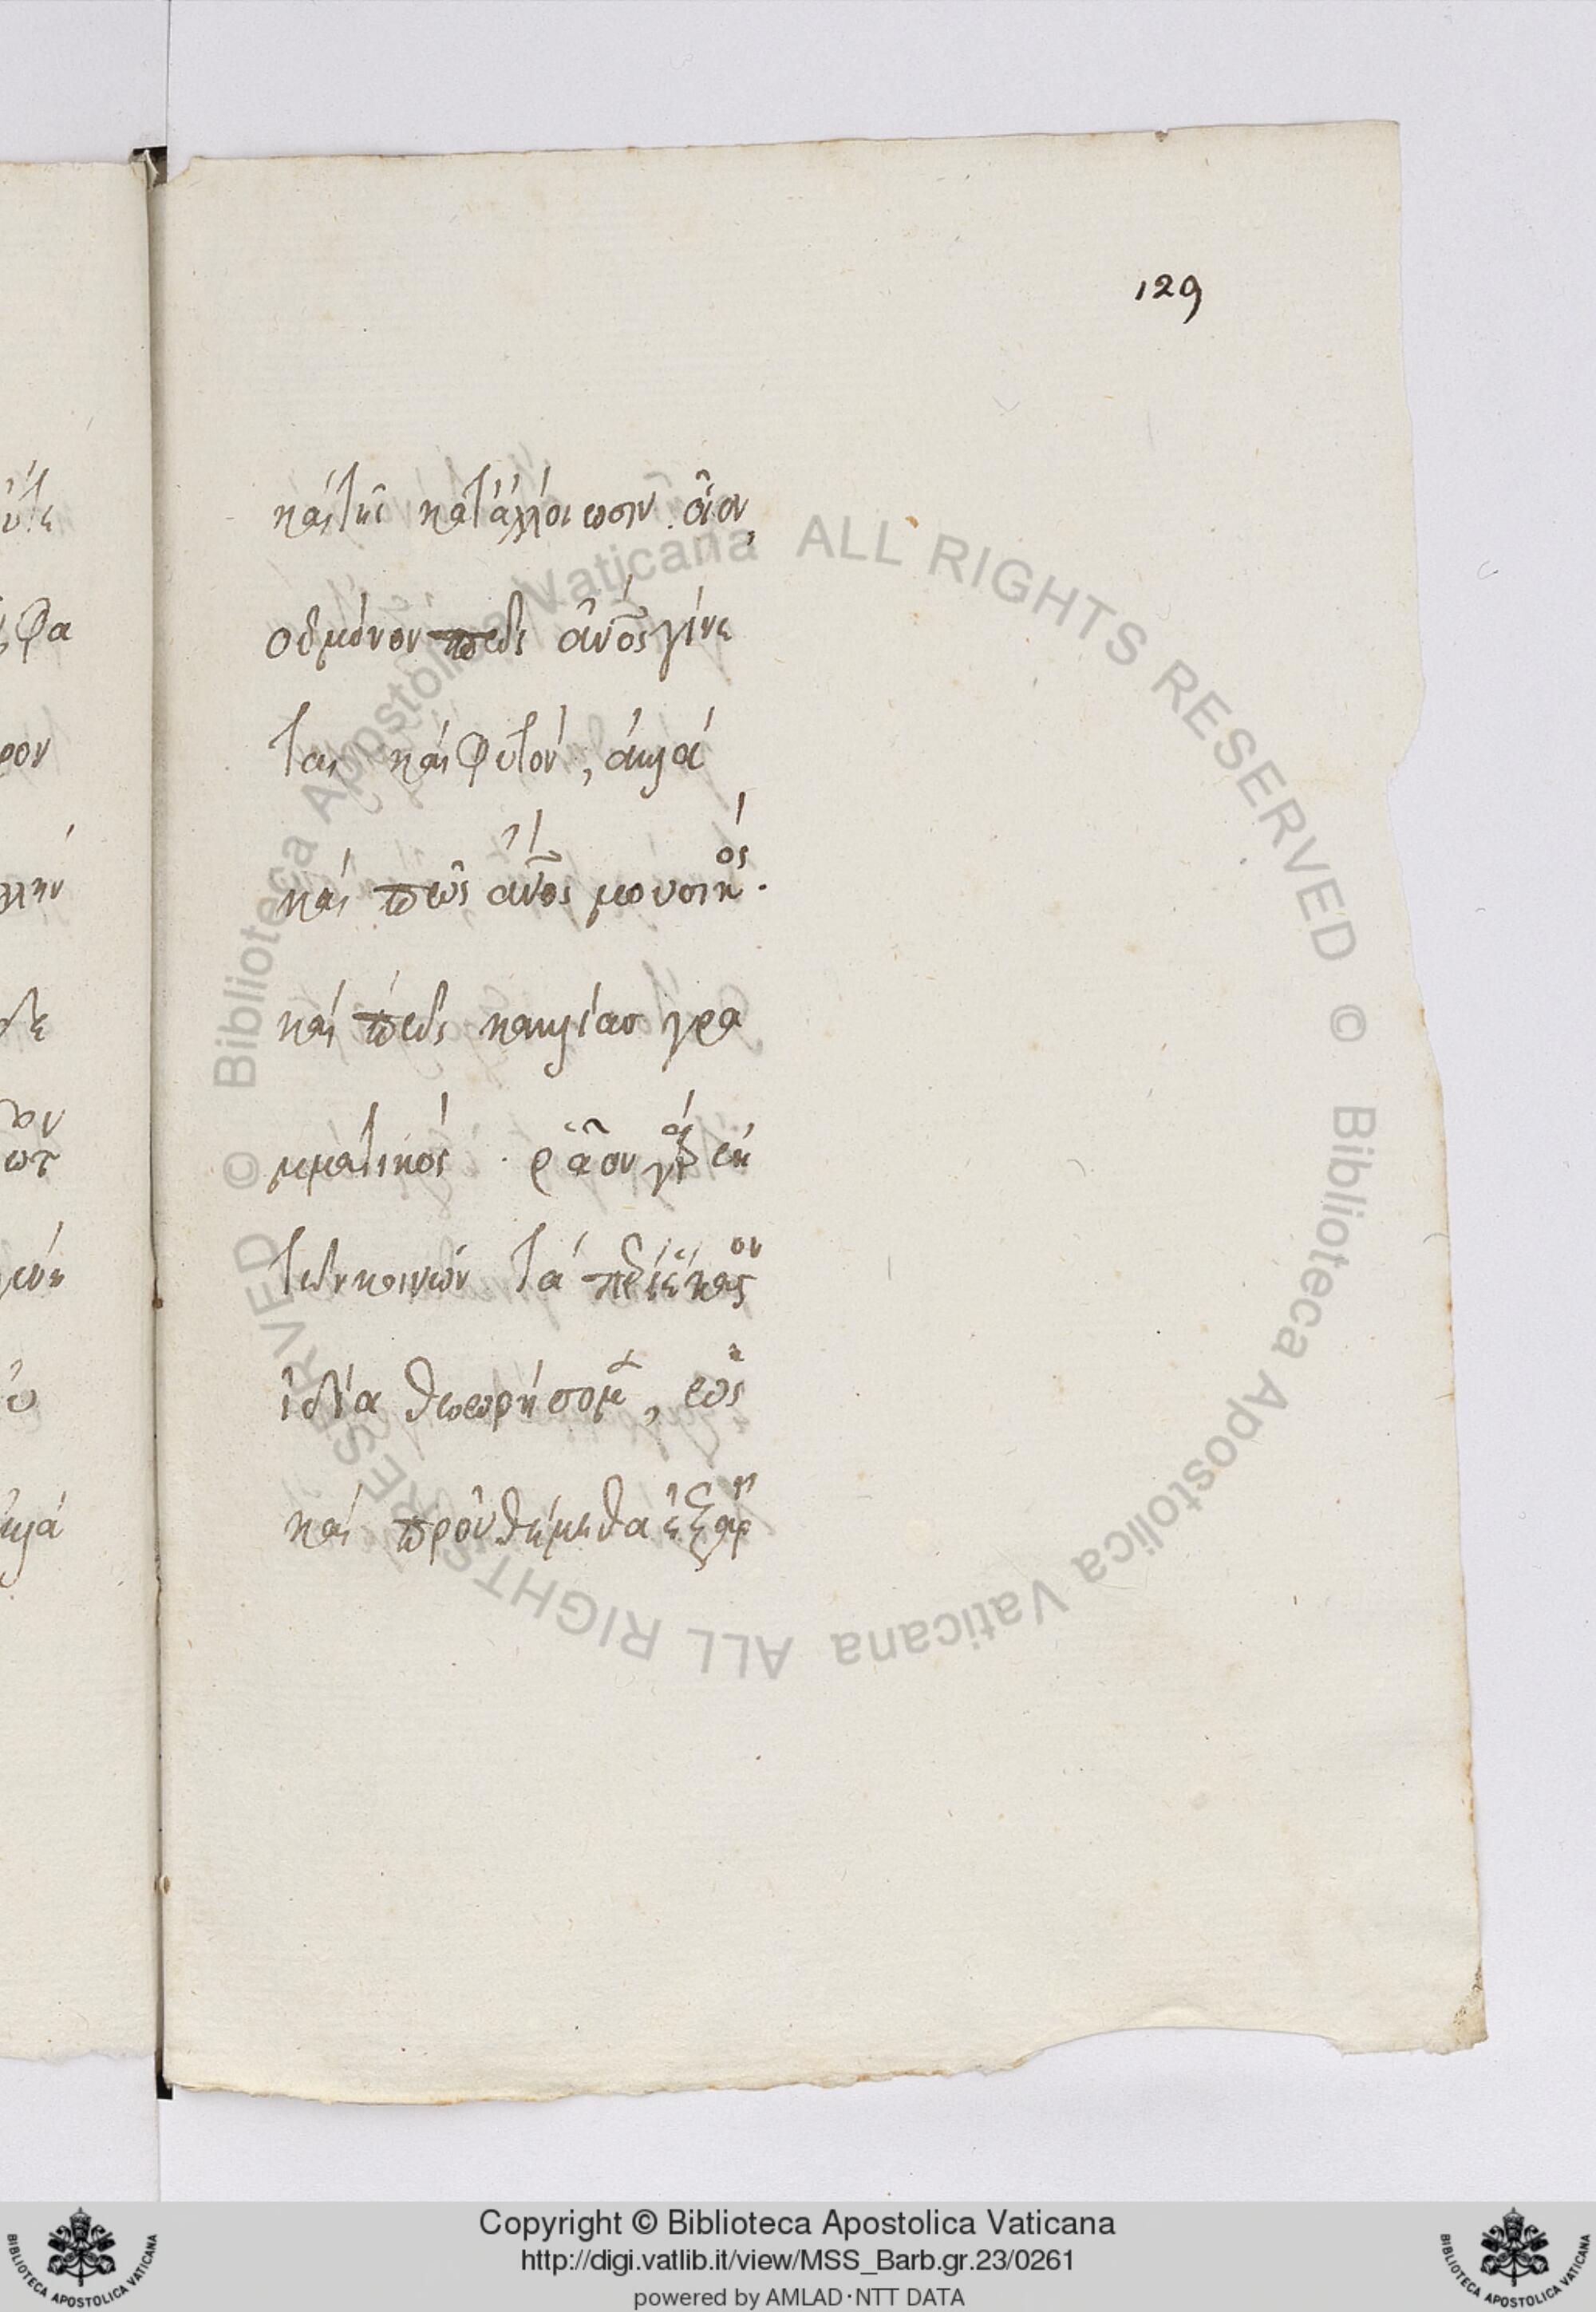 129
καὶ τῆς κατ' ἀλλοίωσιν. οἷον,
οὐ μόνον πῶς ἄνος γίνε
ται καὶ φυτόν, ἀλλὰ
καὶ πῶς ἄνος μουσικός.
καὶ πῶς καλλίας γρα
μματικός. ῥᾷον γὰρ ἐκ
τῶν κοινῶν τὰ περὶ ἕκαστον
ἰδία θεωρήσομεν,
καὶ προὐθέμεθα ἐξ ἀρ
Copyright © Biblioteca Apostolica Vaticana
http://digi.vatlib.it/view/MSS_Barb.gr.23/0261
powered by AMLAD·NTT DATA
© Biblioteca Apostolica Vaticana ALL RIGHTS RESERVED © Biblioteca Apostolica Vaticana ALL RIGHTS RESERVED
BIBLIOTECA APOSTOLICA VATICANA
BIBLIOTECA APOSTOLICA VATICANA